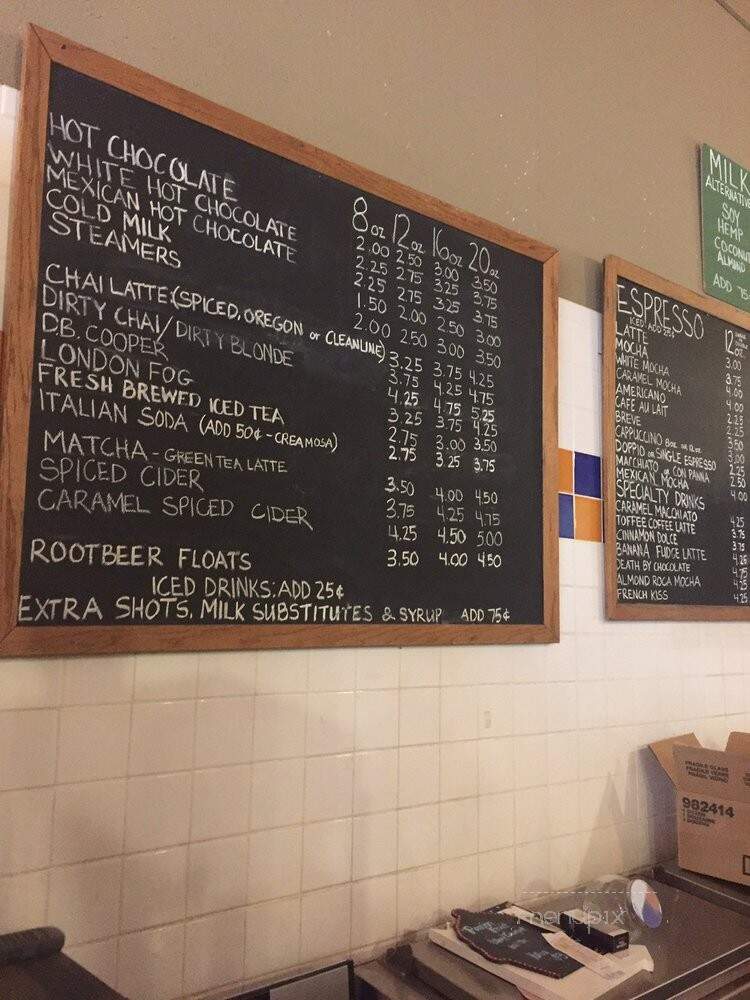 HOT CHOCOLATE 2.00 2.50 3.00 3.50
8oz 12oz 16oz 20oz
WHITE HOT CHOCOLATE 2.25 2.75 3.25 3.75
MEXICAN HOT CHOCOLATE 2.25 2.75 3.25 3.75
COLD MILK 1.50 2.00 2.50 3.00
STEAMERS 2.00 2.50 3.00 3.50
CHAI LATTE (SPICED, OREGON or CLEANLINE) 3.25 3.75 4.25
DIRTY CHAI/DIRTY BLONDE 3.75 4.25 4.75
D.B. COOPER 4.25 4.75 5.25
LONDON FOG 3.25 3.75 4.25
FRESH BREWED ICED TEA 2.75 3.00 3.50
ITALIAN SODA (ADD 50¢ - CREAMOSA) 2.75 3.25 3.75
MATCHA - GREEN TEA LATTE 3.50 4.00 4.50
SPICED CIDER 3.75 4.25 4.75
CARAMEL SPICED CIDER 4.25 4.50 5.00
ROOTBEER FLOATS 3.50 4.00 4.50
ICED DRINKS: ADD 25¢
EXTRA SHOTS, MILK SUBSTITUTES & SYRUP ADD 75¢
MILK
ALTERNATIVE
SOY
HEMP
COCONUT
ALMOND
ADD 75
ESPRESSO 12oz
ICED ADD 25¢
LATTE 3.00
MOCHA 3.75
WHITE MOCHA 4.00
CARAMEL MOCHA 4.00
AMERICANO 2.25
CAFE AU LAIT 2.25
BREVE 3.50
CAPPUCCINO 8oz or 12oz 3.00
DOPPIO or SINGLE ESPRESSO 2.25
MACCHIATO or CON PANNA 2.50
MEXICAN MOCHA 4.00
SPECIALTY DRINKS
CARAMEL MACCHIATO 4.25
TOFFEE COFFEE LATTE 3.75
CINNAMON DOLCE 3.75
BANANA FUDGE LATTE 4.25
DEATH BY CHOCOLATE 4.75
ALMOND ROCA MOCHA 4.25
FRENCH KISS 4.25
FRAGILE GLASS
982414
menupix